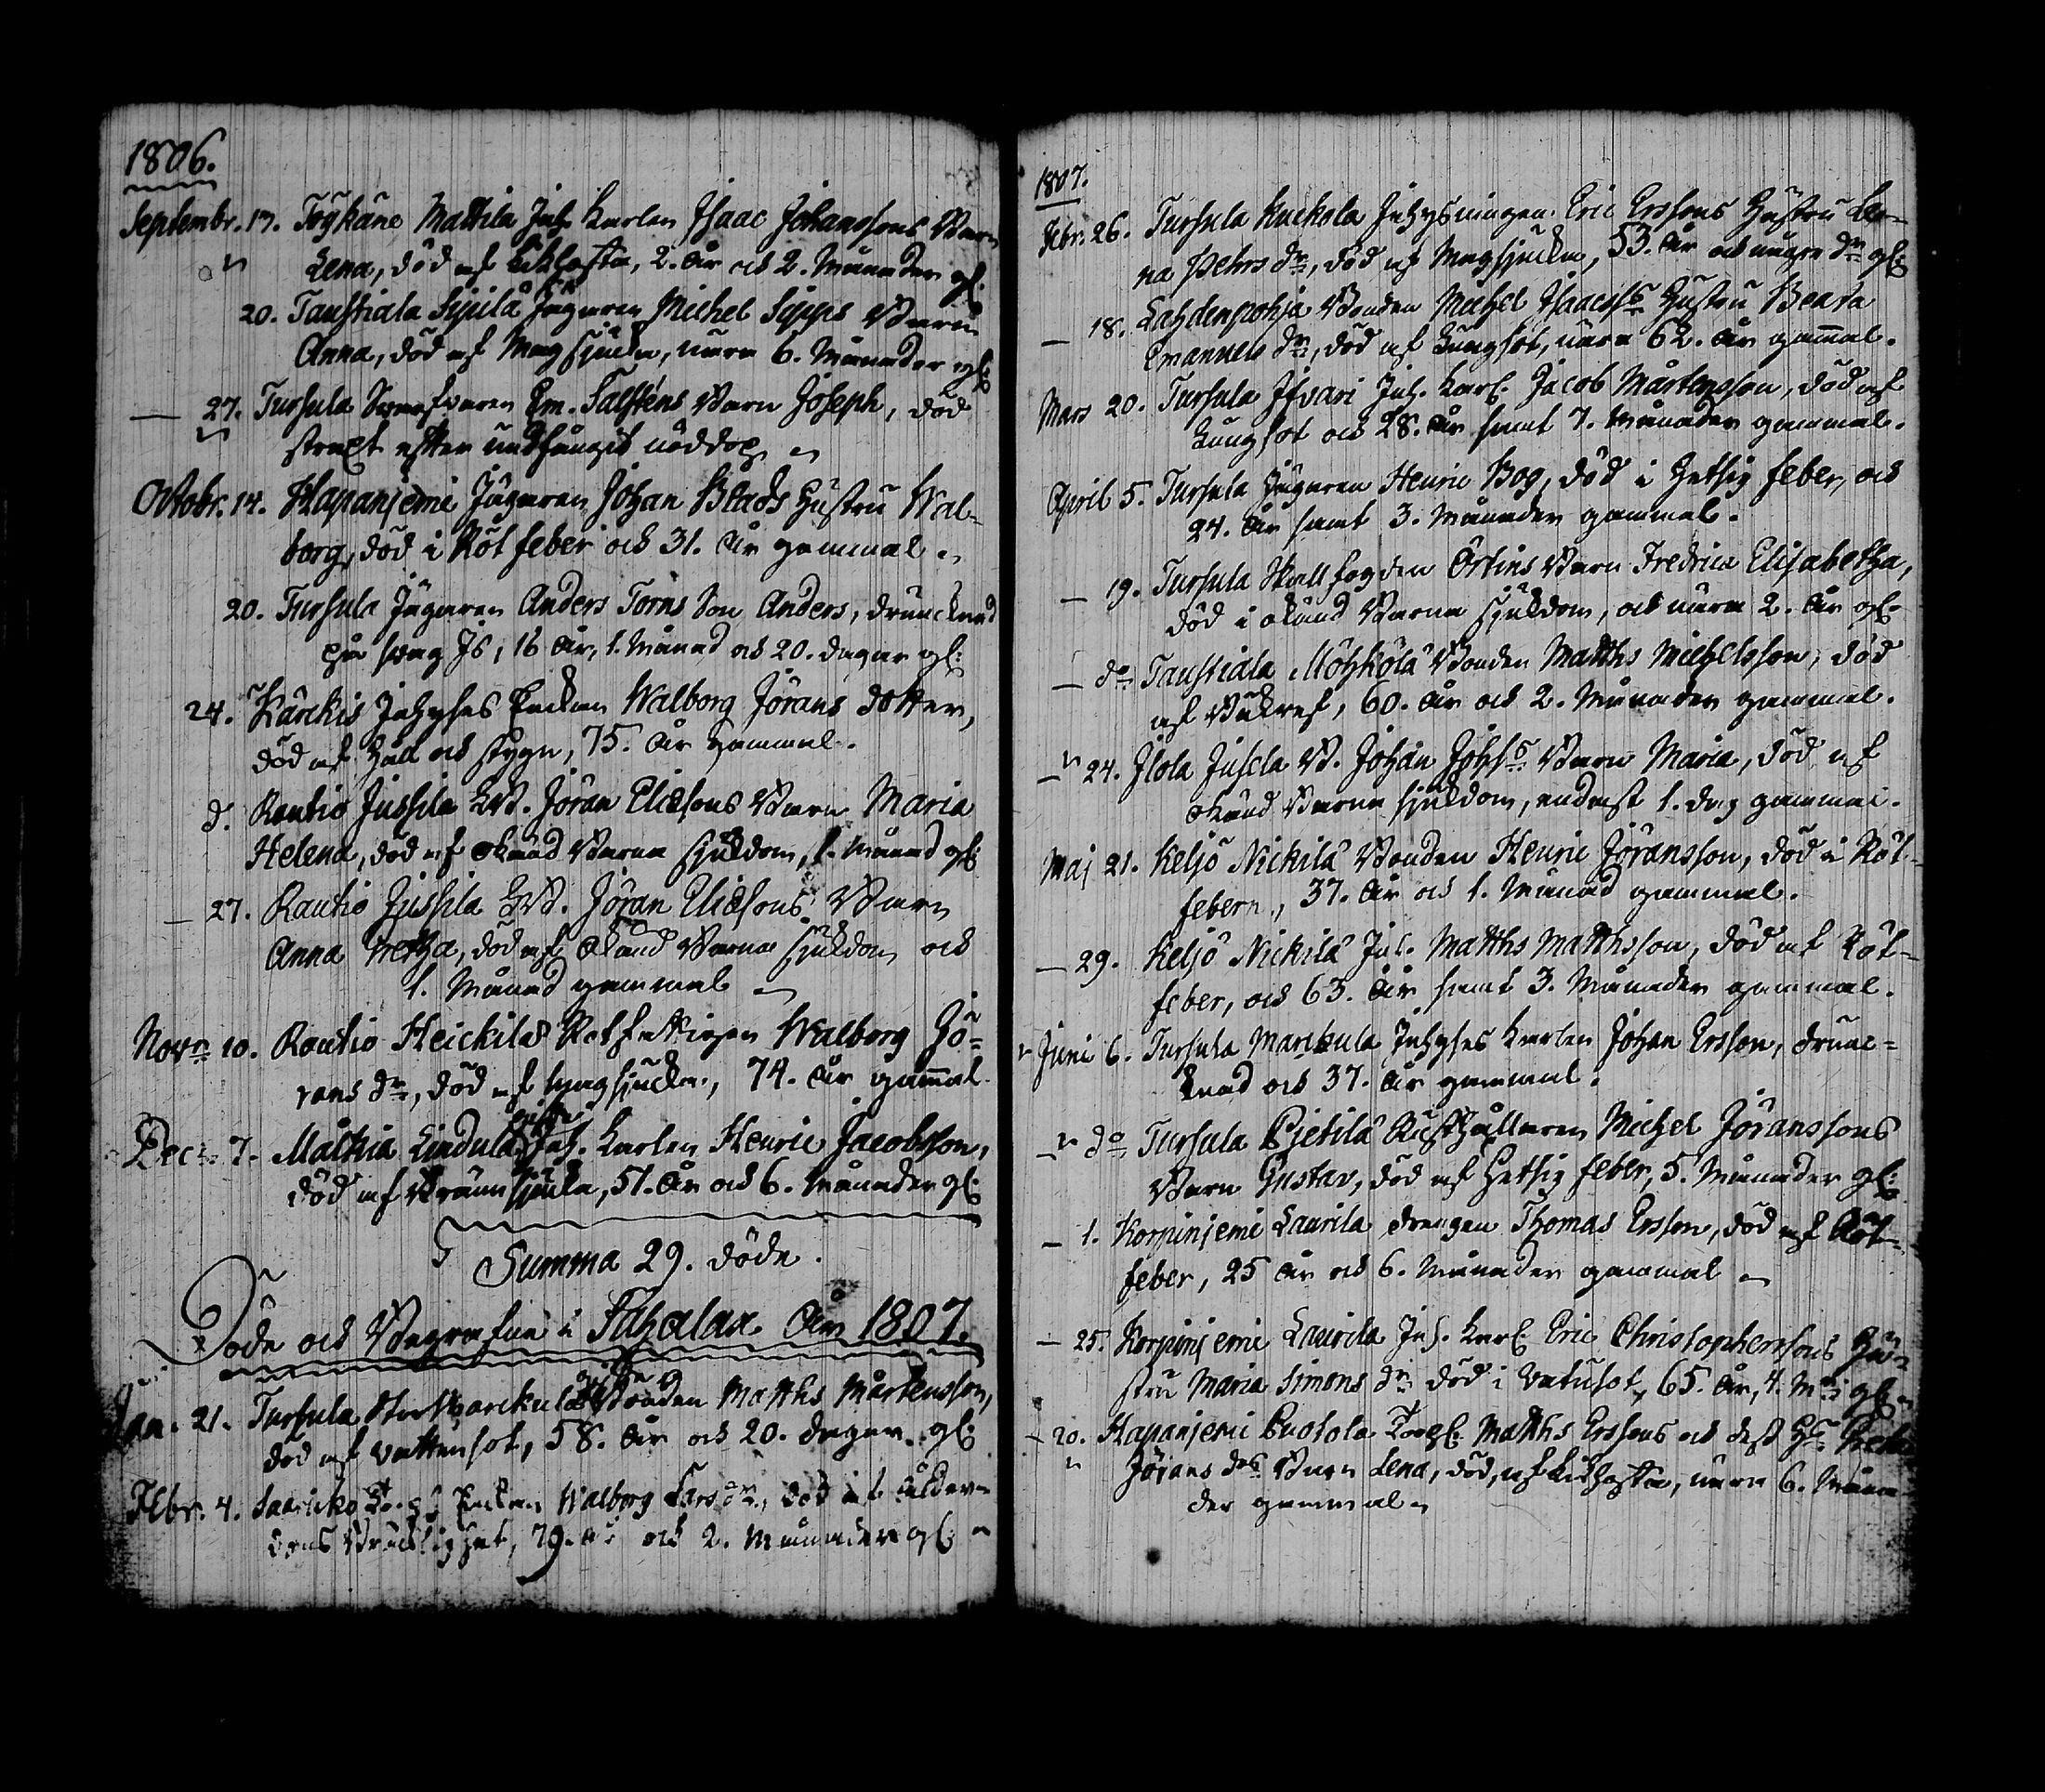 1806.
Septembr. 17. Töykäne Mattila Inh. Karlen Isaac Johanssons Barn
Lena, död af Kikhosta, 2. år och 2. Månader gl:
20. Taustiala Sipilä Jägaren Michel Sipps Barn
Anna, död af Magsjuka, nära 6. Månader gl:
27. Tursula Swarfvaren Em. Talsténs Barn Joseph, död
straxt efter undfångit nöddop
Octobr. 14. Hapanjemi Jägaren Johan Blads Hustru Wal-
borg, död i Rötfeber och 31. år gammal
20. Tursula Jägaren Anders Törns Son Anders, drunknad
på swag Is, 16 år, 1. Månad och 20. dagar gl:
24. Kärckis Inhyses Enkan Walborg Jörans dotter,
död af håll och stygn, 75. år gammal.
d. Rautio Jussila Bd. Jöran Eliæsons Barn Maria
Helena, död af okänd Barna sjukdom, 1. Månad gl:
27. Rautio Jussila Bd. Jöran Eliæsons Barn
Anna Gretha, död af okänd Barna sjukdom och
1. Månad gammal
Novr. 10. Rautio Heickilä Rotfattigen Walborg Jö-
rans dr, död af Magsjuka, 74. år gammal
Dec: 7. Mälkiä Lindula Inh. Karlen Henric Jacobsson,
död af Brännsjuka, 51. år och 6. Månader gl:
Summa 29. döde.
Döde och Begrafne i Sahalax År 1807.
Jan. 21. Tursula Stor Marckula Bonden Matths Mårtensson,
död af wattusot, 58. år och 20. dagar gl:
Febr. 4. Saaricko Enkan Walborg Lars dr, död af ålder-
doms Bräcklighet, 79. år och 2. Månader gl:
1807.
Febr. 26. Tursula Kuckola Inhysningen Eric Erssons Hustru Le-
na Pehrs dr, död af Magsjuka, 53. år och några dr gl:
18. Lahdenpohja Bonden Michel Isacss Hustru Beata
Emanuels dr, död af Lungsot, nära 62. år gammal.
Mars 20. Tursula Ifvari Inh. Karl Jacob Mårtensson, död af
Lungsot och 28. år samt 7. Månader gammal.
April 5. Tursula Jägaren Henric Bog, död i Hetsig feber, och
24. år samt 3. Månader gammal.
19. Tursula Skallfogden Örtins Barn Fredrica Elisabetha,
död i okänd Barna sjukdom, och nära 2. år gl:
do Taustiala Möyhölä Bonden Matths Michelsson, död
af Blåkref, 60. år och 2. Månader gammal.
24. Ilola Jusela B. Johan Johss Barn Maria, död af
okänd Barna sjukdom, endast 1. dag gammal.
Maj 21. Keljo Nickilä Bonden Henric Jöransson, död i Röt-
febern, 37. år och 1. Månad gammal.
29. Keljo Nickilä Inh. Matths Matthsson, död af Röt-
feber, och 63. år samt 3. Månader gammal.
Juni 6. Tursula Marckula Inhyses Karlen Johan Ersson, drunc-
knad och 37. år gammal.
do Tursula Pietilä Rusthållaren Michel Jöranssons
Barn Gustav, död af Hetsig feber, 5. Månader gl:
1. Korpinjemi Laurila drengen Thomas Ersson, död af Röt-
feber, 25 år och 6. Månader gammal
25. Korpinjemi Laurila Inh. Karl Eric Christopherssons Hu-
stru Maria Simons dr död i Watusot, 65. år, 4. Mr gl:
20. Hapanjemi Puotola Torp: Matths Erssons och dess H: Greta
Jörans drs Barn Lena, död af Kikhosta, nära 6. Måna-
der gammal